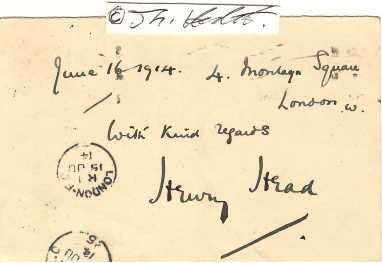 © Th. Veith.
June 16 1914. 4. Montagu Square
London. W.
With kind regards
Henry Head
LONDON·
K 1
15 JU
14
15 JU
14